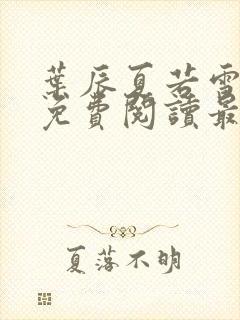 葉辰夏若雪
免費閱讀最
夏落不明